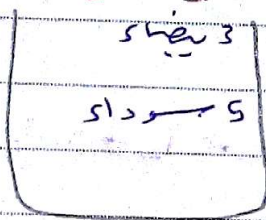 3 بيضاء
5 سوداء